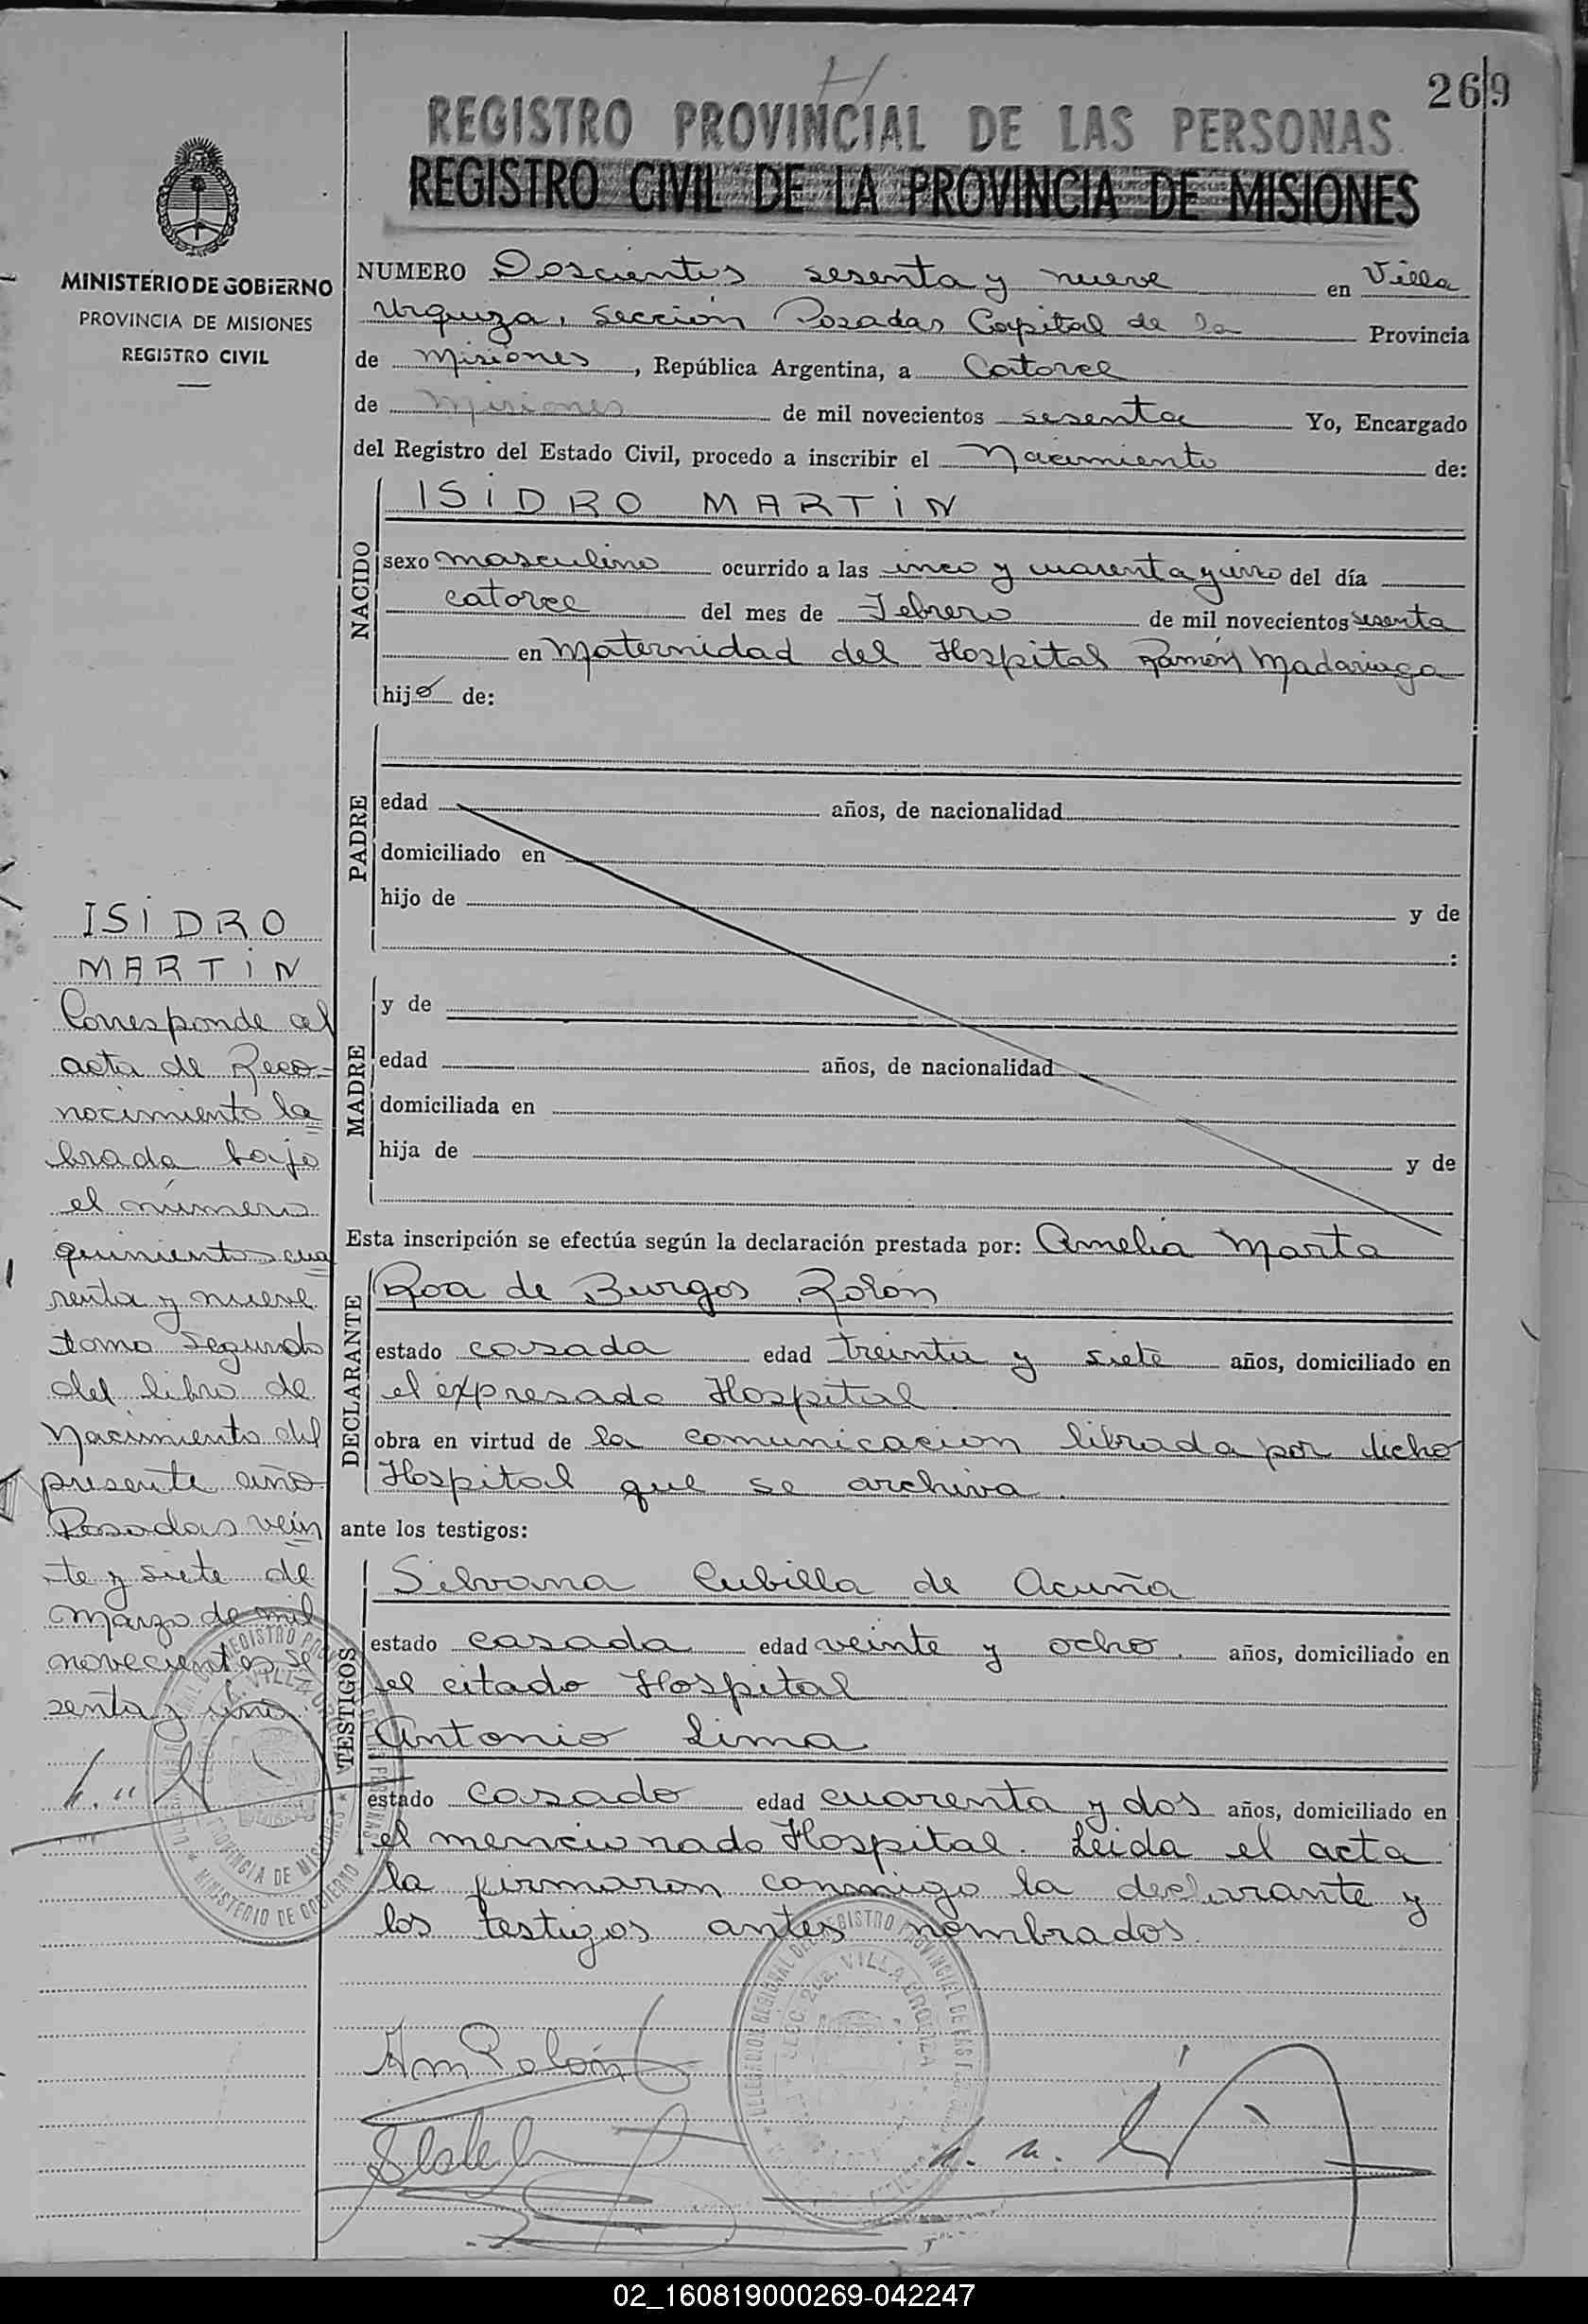 269
REGISTRO PROVINCIAL DE LAS PERSONAS
REGISTRO CIVIL DE LA PROVINCIA DE MISIONES
MINISTERIO DE GOBIERNO
PROVINCIA DE MISIONES
REGISTRO CIVIL
NUMERO Doscientos sesenta y nueve en Villa
Urquiza, Sección Posadas Capital de la Provincia
de Misiones, República Argentina, a Catorce
de Misiones de mil novecientos sesenta Yo, Encargado
del Registro del Estado Civil, procedo a inscribir el Nacimiento de:
NACIDO
ISIDRO MARTIN
sexo masculino ocurrido a las cinco y cuarenta y cinco del día
catorce del mes de Febrero de mil novecientos sesenta
en Maternidad del Hospital Ramón Madariaga
hijo de:
PADRE
edad años, de nacionalidad
domiciliado en
hijo de y de
:
MADRE
y de
edad años, de nacionalidad
domiciliada en
hija de y de
Esta inscripción se efectúa según la declaración prestada por: Amelia Marta
DECLARANTE
Roa de Burgos Rolón
estado casada edad treinta y siete años, domiciliado en
el expresado Hospital
obra en virtud de la comunicacion librada por dicho
Hospital que se archiva.
ante los testigos:
TESTIGOS
Silvana Cubilla de Acuña
estado casada edad veinte y ocho. años, domiciliado en
el citado Hospital
Antonio Lima
estado casado edad cuarenta y dos años, domiciliado en
el mencionado Hospital. Leida el acta
la firmaron conmigo la declarante y
los testigos antes nombrados.
ISIDRO
MARTIN
Corresponde al
acta de Reco-
nocimiento la
brada bajo
el número
quinientos cua
renta y nueve
tomo segundo
del libro de
Nacimiento del
presente año
Posadas vein
te y siete de
Marzo de mil
novecientos se
senta y uno.
REGISTRO
VILLA
PROVINCIA DE MISIONES
MINISTERIO DE GOBIERNO
DELEGACION REGIONAL DEL REGISTRO PROVINCIAL DE LAS
SECC. 2da. VILLA URQUIZA
Am Rolón
02_160819000269-042247